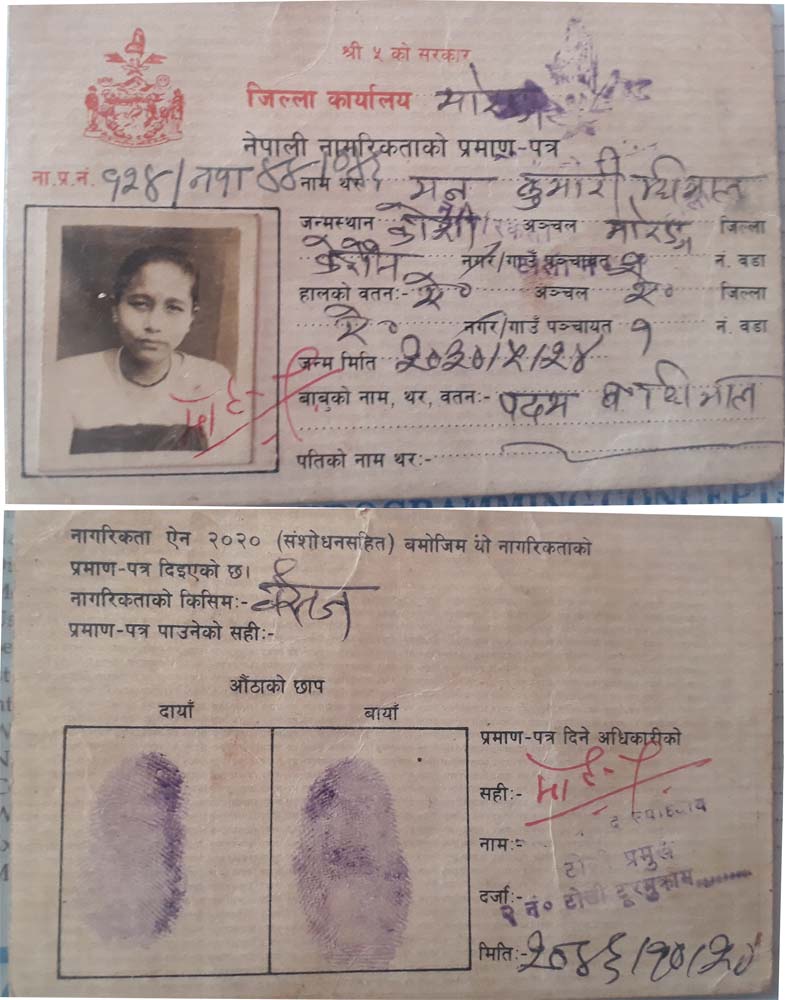 श्री ५ को सरकार
जिल्ला कार्यालय मोरङ
नेपाली नागरिकताको प्रमाण-पत्र
ना.प्र.नं. १२४/नपा
नाम थर: मन कुमारी धिमाल
जन्मस्थान कोशी अञ्चल मोरङ जिल्ला
नगर/गाउँ पञ्चायत नं. वडा
हालको वतन:- ऐ० अञ्चल ऐ० जिल्ला
ऐ० नगर/गाउँ पञ्चायत १ नं. वडा
जन्म मिति २०३०/५/२४
बाबुको नाम, थर, वतन:- पदम ब धिमाल
पतिको नाम थर:-
नागरिकता ऐन २०२० (संशोधनसहित) बमोजिम यो नागरिकताको
प्रमाण-पत्र दिइएको छ।
नागरिकताको किसिम:- वंशज
प्रमाण-पत्र पाउनेको सही:-
औंठाको छाप
दायाँ बायाँ
प्रमाण-पत्र दिने अधिकारीको
सही:-
नाम:-
टोली प्रमुख
दर्जा:- २ नं० टोली
मिति:- २०४६/१०/२०